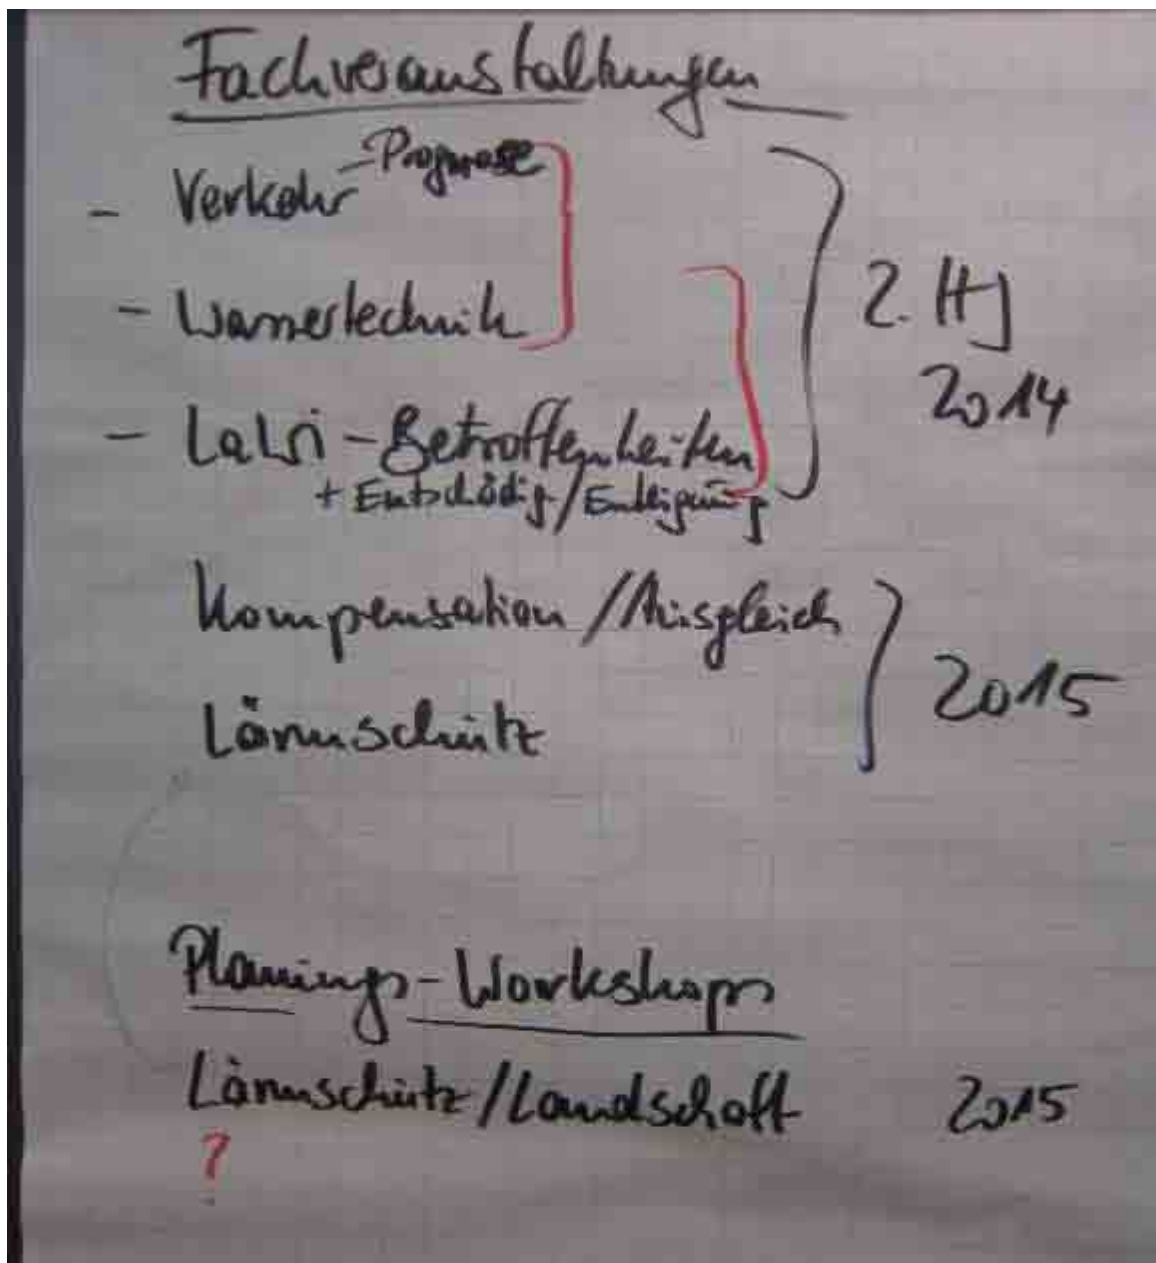 Fachveranstaltungen
- Verkehr - Prognose
- Wassertechnik
2. HJ
2014
- LaWi - Betroffenheiten
+ Entschädig / Enteignung
Kompensation / Ausgleich
2015
Lärmschutz
Planungs - Workshops
Lärmschutz / Landschaft 2015
?